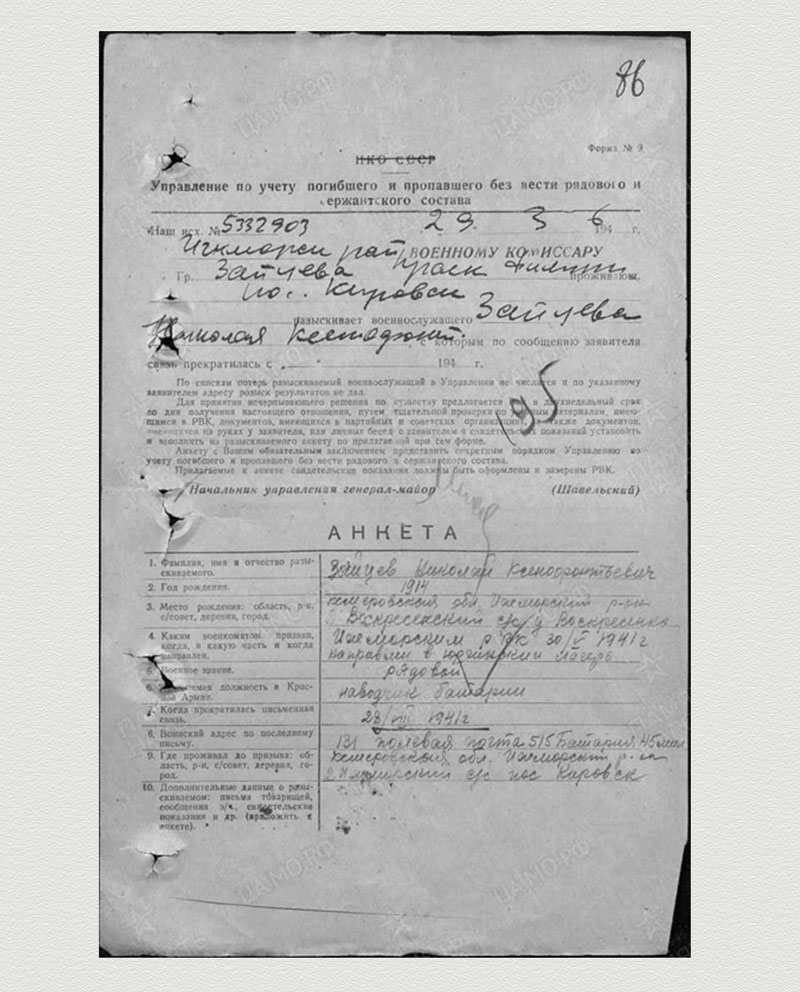 86
Форма № 9
НКО СССР
Управление по учету погибшего и пропавшего без вести рядового и
сержантского состава
Наш исх. № 5332903 29. 3 1946 г.
район ВОЕННОМУ КОМИССАРУ
Гр. Зайцева проживающ.
пос. Кировск
разыскивает военнослужащего Зайцева
Николая с которым по сообщению заявителя
связь прекратилась с „ " 194 г.
По спискам потерь разыскиваемый военнослужащий в Управлении не числится и по указанному
заявителем адресу розыск результатов не дал.
Для принятия исчерпывающего решения по существу предлагается в двухнедельный срок
со дня получения настоящего отношения, путем тщательной проверки по учетным материалам, имею-
щимся в РВК, документов, имеющихся в партийных и советских организациях, а также документов,
имеющихся на руках у заявителя, или личных бесед с заявителем и свидетельских показаний установить
и заполнить на разыскиваемого анкету по прилагаемой при сем форме.
Анкету с Вашим обязательным заключением представить секретным порядком Управлению по
учету погибшего и пропавшего без вести рядового и сержантского состава.
Прилагаемые к анкете свидетельские показания должны быть оформлены и заверены РВК.
195
Начальник управления генерал-майор (Шавельский)
АНКЕТА
1. Фамилия, имя и отчество разы-
скиваемого.
Зайцев Николай Ксенофонтьевич
2. Год рождения.
1914
3. Место рождения: область, р-н,
с/совет, деревня, город.
Кемеровская обл Ижморский р-он
Воскресенский с/с д Воскресенка
4. Каким военкоматом призван,
когда, в какую часть и когда
направлен.
Ижморским РВК 30/VI 1941 г
направлен в Юргинский лагерь
5. Военное звание.
рядовой
6. Занимаемая должность в Крас-
ной Армии.
наводчик батарии
7. Когда прекратилась письменная
связь.
28/VIII 1941 г
8. Воинский адрес по последнему
письму.
131 полевая почта 515 Батария 45 мил
9. Где проживал до призыва: об-
ласть, р-н, с/совет, деревня, го-
род.
Кемеровская обл. Ижморский р-он
с/с пос Кировск
10. Дополнительные данные о разы-
скиваемом: письма товарищей,
сообщения в/ч, свидетельские
показания и др. (приложить к
анкете).
ЦАМО.РФ